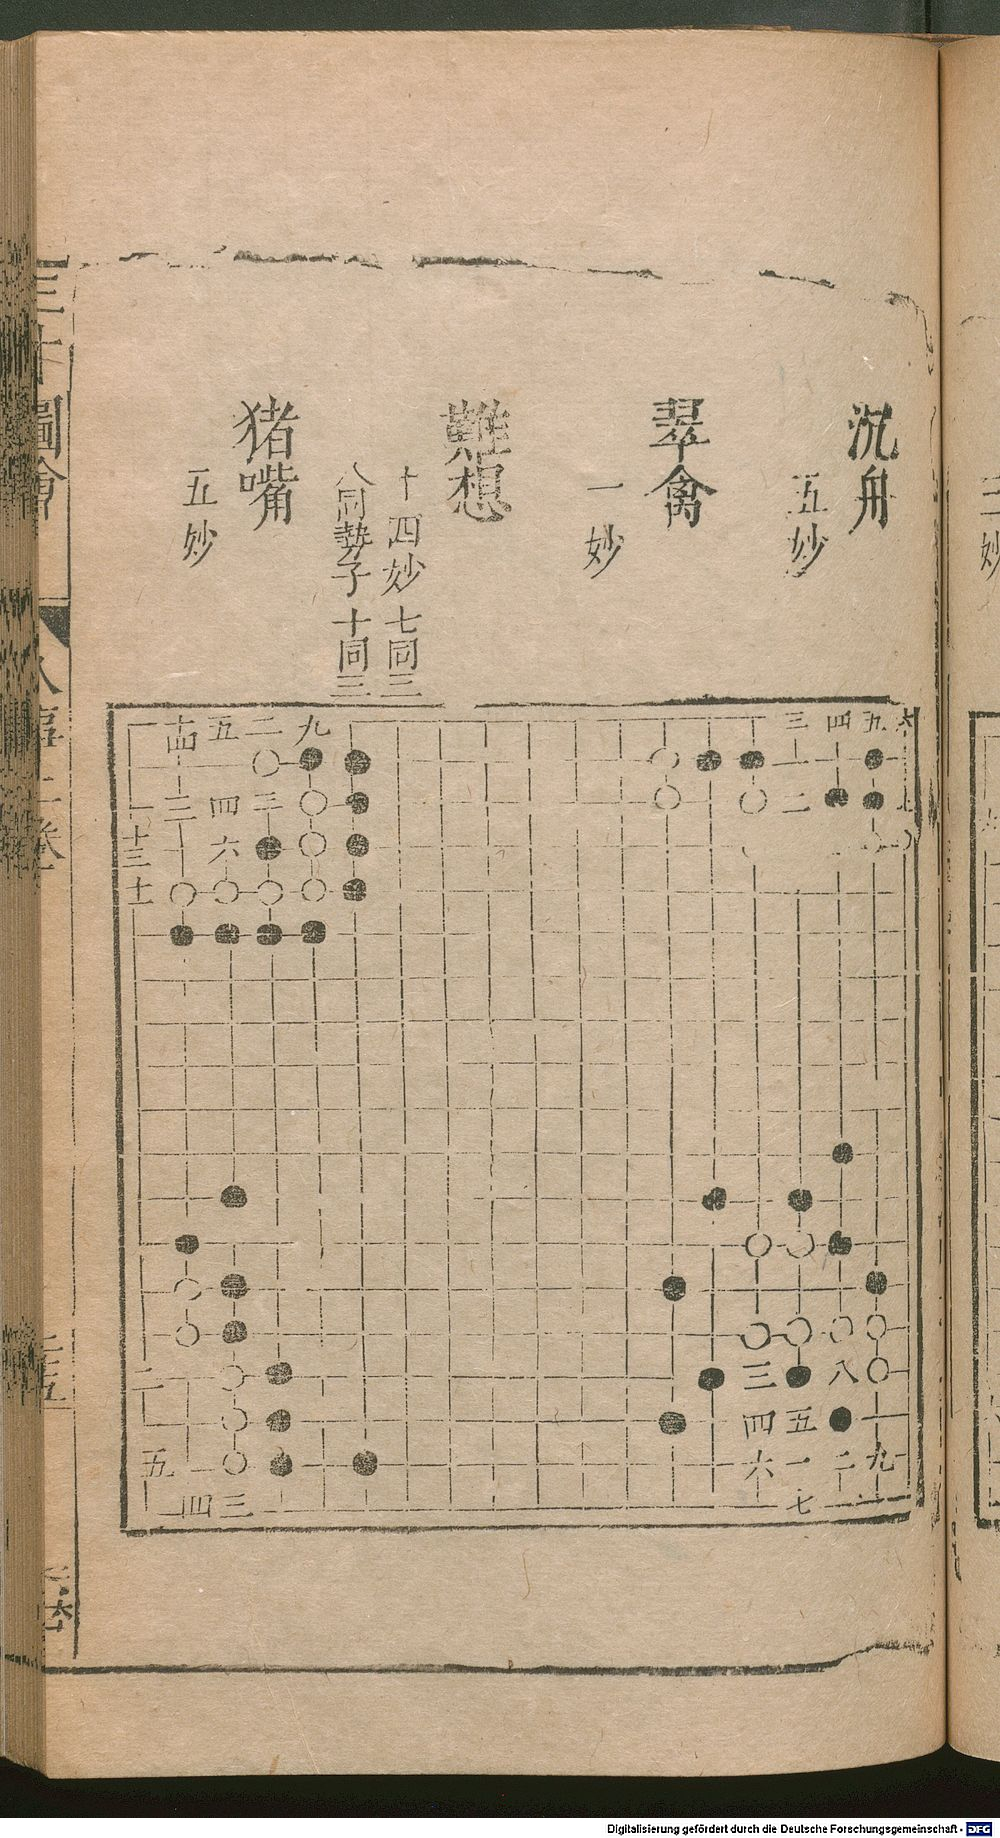 三妙
沉舟
五妙
翠禽
一妙
難想
十四妙 七同三
八同勢子 十同三
猪嘴
五妙
三才圖會
人事一卷
三十五
十四 五 二 九 三 四 五 六
一 三 四 三 二 七
十三 六
十
三 八
二
四 五
五 一 六 一 二 九
四 三 七
Digitalisierung gefördert durch die Deutsche Forschungsgemeinschaft - DFG